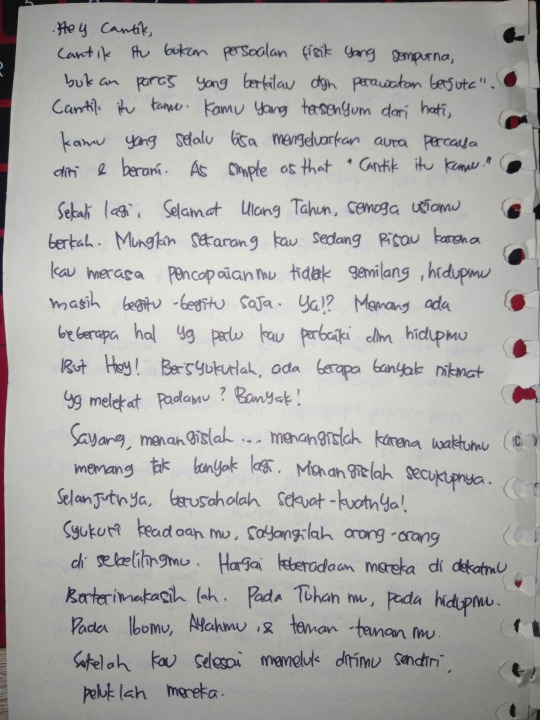 Hey Cantik,
Cantik itu bukan persoalan fisik yang sempurna,
bukan paras yang berkilau dgn perawatan berjuta".
Cantik itu kamu. Kamu yang tersenyum dari hati,
kamu yang selalu bisa mengeluarkan aura percaya
diri & berani. As simple as that "Cantik itu kamu."
Sekali lagi, Selamat Ulang Tahun, semoga usiamu
berkah. Mungkin sekarang kau sedang risau karena
kau merasa pencapaianmu tidak gemilang, hidupmu
masih begitu-begitu saja. Ya!? Memang ada
beberapa hal yg perlu kau perbaiki dlm hidupmu
But Hey! Bersyukurlah, ada berapa banyak nikmat
yg melekat padamu? Banyak!
Sayang, menangislah ... menangislah karena waktumu
memang tak banyak lagi. Menangislah secukupnya.
Selanjutnya, berusahalah sekuat-kuatnya!
Syukuri keadaan mu, sayangilah orang-orang
di sekelilingmu. Hargai keberadaan mereka di dekatmu
Berterimakasih lah. Pada Tuhan mu, pada hidupmu.
Pada Ibumu, Ayahmu, & teman-teman mu.
Setelah kau selesai memeluk dirimu sendiri,
peluklah mereka.